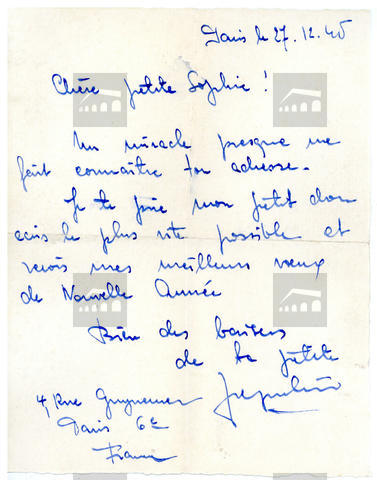 Paris le 27.12.45
Chère petite Sophie !
Un miracle presque me
fait connaître ton adresse.
Je te prie mon petit
ecris le plus vite possible et
reçois mes meilleurs vœux
de Nouvelle Année
Bien des baisers
de ta petite
4, Rue Guynemer
Paris 6e
France